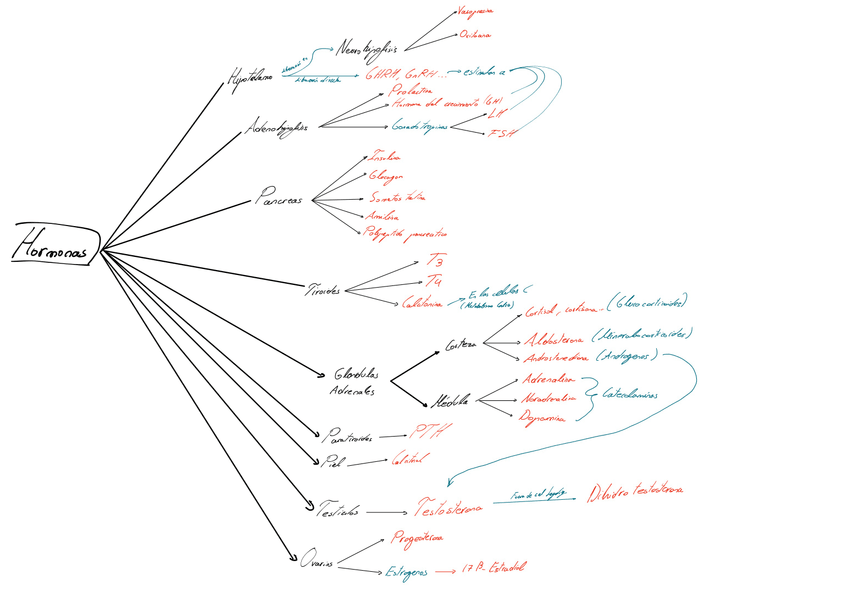 Hormonas
Hypotálamo
Neurohipófisis
Vasopresina
Oxitocina
Liberación directa
GHRH, GnRH... → estimulan a
Adenohipófisis
Prolactina
Hormona del crecimiento (GH)
Gonadotropinas
LH
FSH
Páncreas
Insulina
Glucagon
Somatostatina
Amilina
Polipéptido pancreático
Tiroides
T3
T4
Calcitonina
En las células C
(Metabolismo Calcio)
Glándulas
Adrenales
Corteza
Cortisol, cortisona (Glucocorticoides)
Aldosterona (Mineralocorticoides)
Androstenediona (Andrógenos)
Médula
Adrenalina
Noradrenalina
Dopamina
Catecolaminas
Paratiroides
PTH
Piel
Calcitriol
Testículos
Testosterona
Dihidro testosterona
Ovarios
Progesterona
Estrógenos
17 β-Estradiol